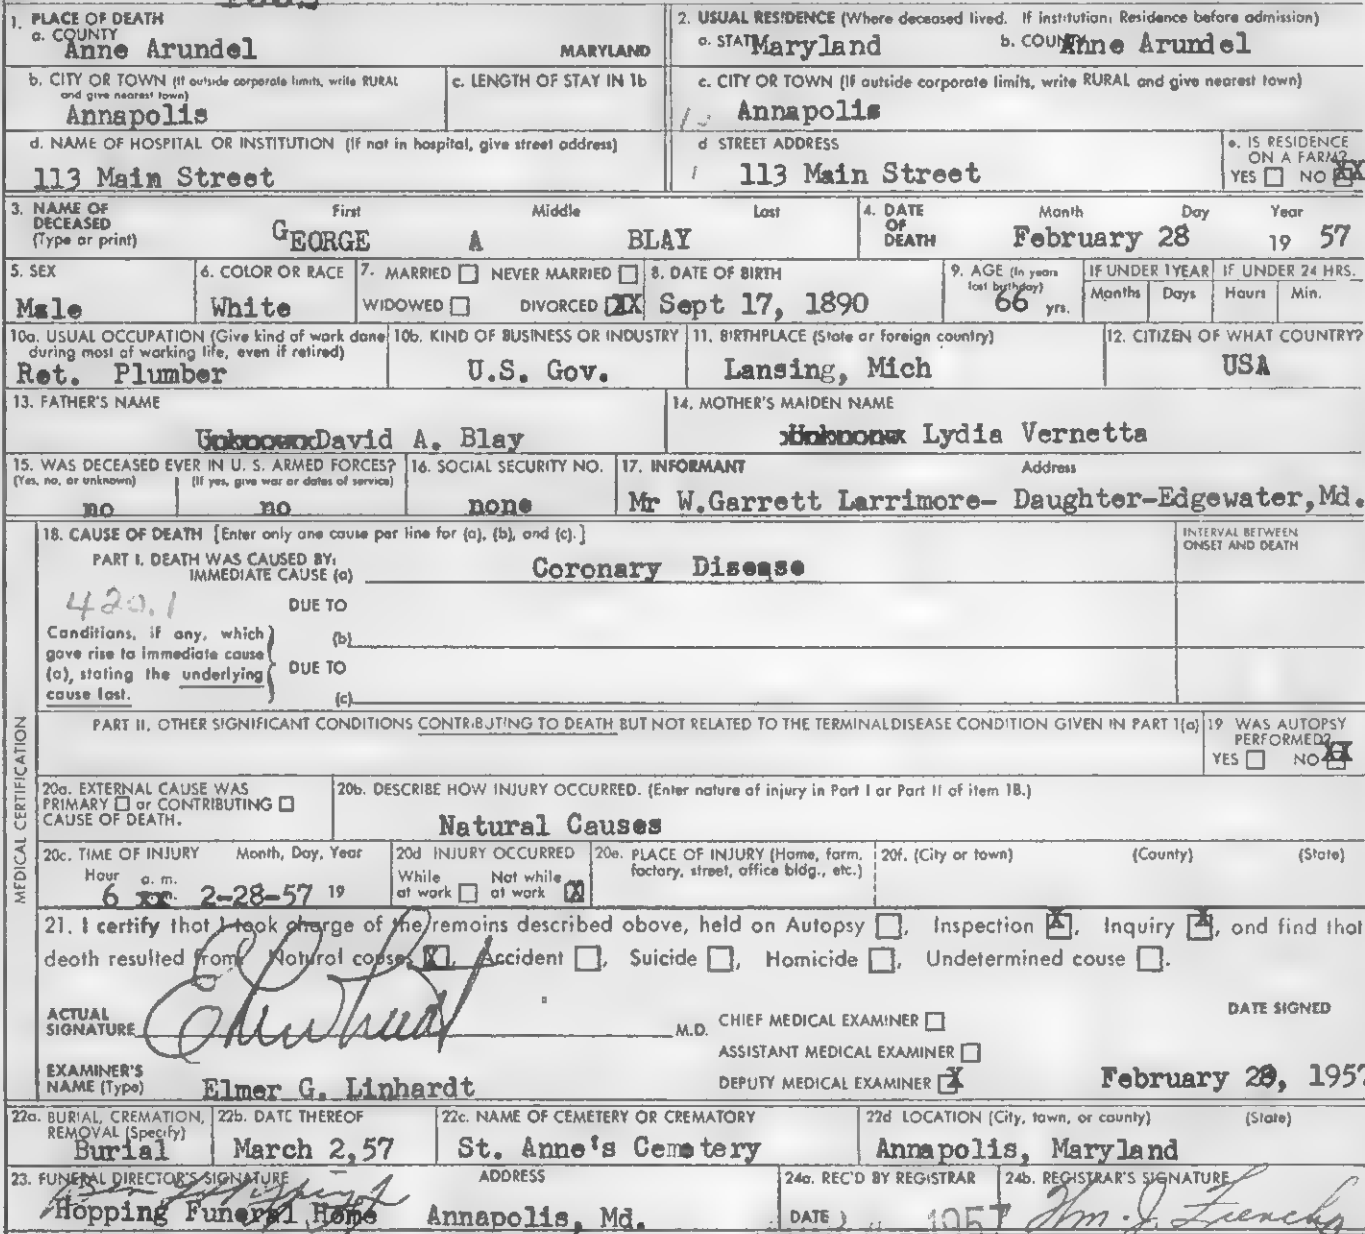 1. PLACE OF DEATH
a. COUNTY
Anne Arundel MARYLAND
2. USUAL RESIDENCE (Where deceased lived. If institution: Residence before admission)
a. STATE Maryland b. COUNTY Anne Arundel
b. CITY OR TOWN (If outside corporate limits, write RURAL and give nearest town)
Annapolis
c. LENGTH OF STAY IN 1b
c. CITY OR TOWN (If outside corporate limits, write RURAL and give nearest town)
Annapolis
d. NAME OF HOSPITAL OR INSTITUTION (If not in hospital, give street address)
113 Main Street
d STREET ADDRESS
113 Main Street
e. IS RESIDENCE
ON A FARM?
YES NO XX
3. NAME OF
DECEASED
(Type or print)
First Middle Last
GEORGE A BLAY
4. DATE
OF
DEATH
Month Day Year
February 28 19 57
5. SEX
Male
6. COLOR OR RACE
White
7. MARRIED NEVER MARRIED
WIDOWED DIVORCED XX
8. DATE OF BIRTH
Sept 17, 1890
9. AGE (In years
last birthday)
66 yrs.
IF UNDER 1 YEAR IF UNDER 24 HRS.
Months Days Hours Min.
10a. USUAL OCCUPATION (Give kind of work done
during most of working life, even if retired)
Ret. Plumber
10b. KIND OF BUSINESS OR INDUSTRY
U.S. Gov.
11. BIRTHPLACE (State or foreign country)
Lansing, Mich
12. CITIZEN OF WHAT COUNTRY?
USA
13. FATHER'S NAME
David A. Blay
14. MOTHER'S MAIDEN NAME
Lydia Vernetta
15. WAS DECEASED EVER IN U. S. ARMED FORCES?
(Yes, no, or unknown) (If yes, give war or dates of service)
no no
16. SOCIAL SECURITY NO.
none
17. INFORMANT Address
Mr W.Garrett Larrimore- Daughter-Edgewater,Md.
18. CAUSE OF DEATH [Enter only one cause per line for (a), (b), and (c).]
INTERVAL BETWEEN
ONSET AND DEATH
PART I. DEATH WAS CAUSED BY:
IMMEDIATE CAUSE (a) Coronary Disease
420.1
DUE TO
Conditions, if any, which
gave rise to immediate cause
(a), stating the underlying
cause last.
(b)
DUE TO
(c)
MEDICAL CERTIFICATION
PART II. OTHER SIGNIFICANT CONDITIONS CONTRIBUTING TO DEATH BUT NOT RELATED TO THE TERMINAL DISEASE CONDITION GIVEN IN PART 1(a)
19 WAS AUTOPSY
PERFORMED?
YES NO XX
20a. EXTERNAL CAUSE WAS
PRIMARY or CONTRIBUTING
CAUSE OF DEATH.
20b. DESCRIBE HOW INJURY OCCURRED. (Enter nature of injury in Part I or Part II of item 18.)
Natural Causes
20c. TIME OF INJURY Month, Day, Year
Hour a. m.
6 2-28-57 19
20d INJURY OCCURRED
While Not while
at work at work X
20e. PLACE OF INJURY (Home, farm,
factory, street, office bldg., etc.)
20f. (City or town) (County) (State)
21. I certify that I took charge of the remains described above, held on Autopsy , Inspection X, Inquiry X, and find that
death resulted from: Natural causes X, Accident , Suicide , Homicide , Undetermined cause .
ACTUAL
SIGNATURE M.D.
CHIEF MEDICAL EXAMINER
ASSISTANT MEDICAL EXAMINER
DEPUTY MEDICAL EXAMINER X
DATE SIGNED
February 28, 1957
EXAMINER'S
NAME (Type) Elmer G. Linhardt
22a. BURIAL, CREMATION,
REMOVAL (Specify)
Burial
22b. DATE THEREOF
March 2,57
22c. NAME OF CEMETERY OR CREMATORY
St. Anne's Cemetery
22d LOCATION (City, town, or county) (State)
Annapolis, Maryland
23. FUNERAL DIRECTOR'S SIGNATURE ADDRESS
Hopping Funeral Home Annapolis, Md.
24a. REC'D BY REGISTRAR
DATE 1957
24b. REGISTRAR'S SIGNATURE
Wm. J. French